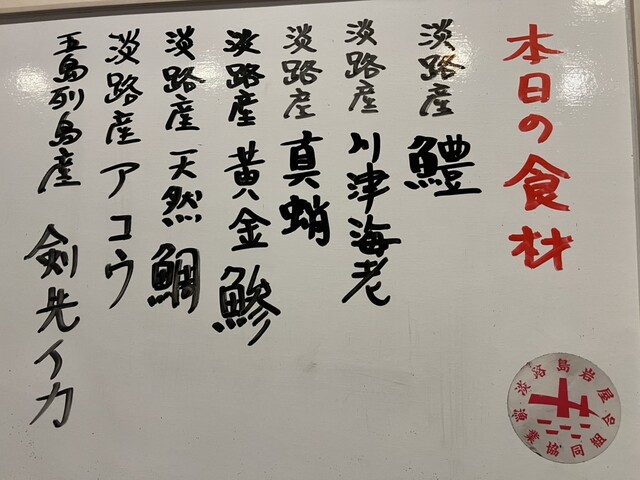 本日の食材
淡路産 鱧
淡路産 川津海老
淡路産 真蛸
淡路産 黄金鯵
淡路産 天然鯛
淡路産 アコウ
五島列島産 剣先イカ
淡路島岩屋漁業協同組合